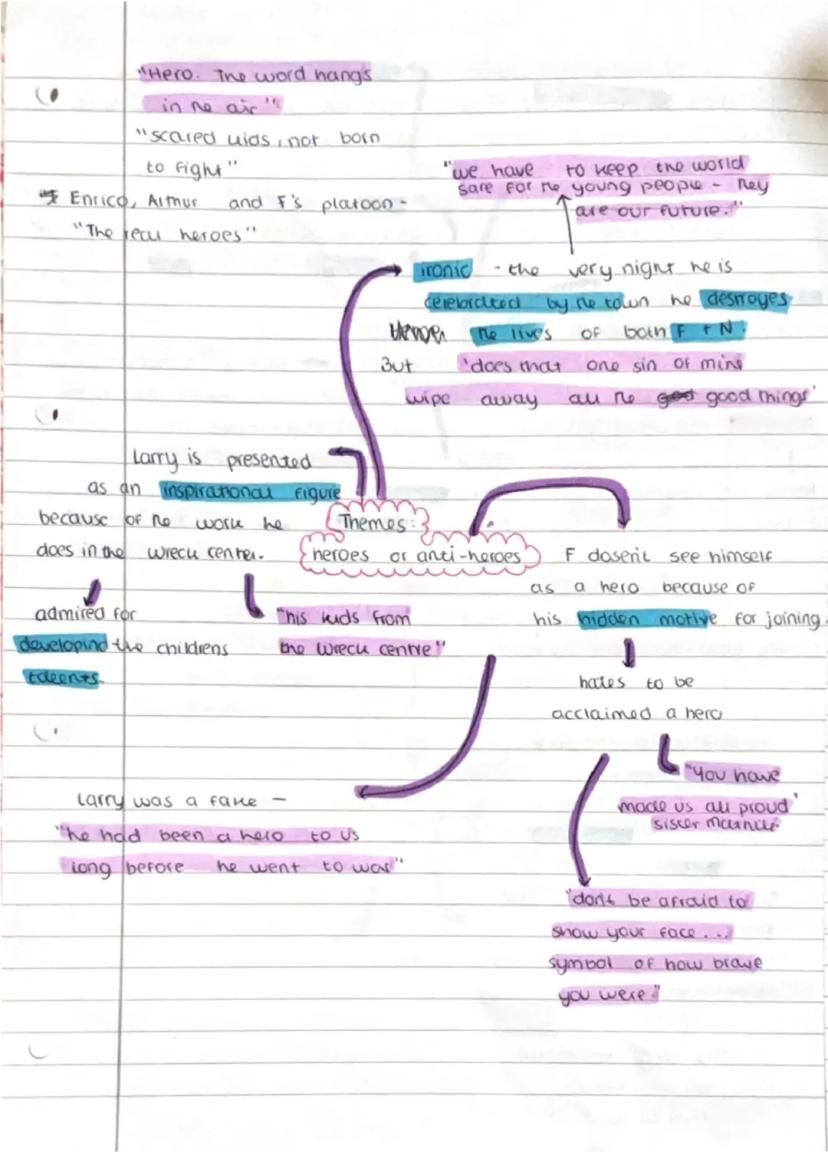 "Hero. The word hangs
in the air"
"scared kids, not born
to fight"
Enrico, Arthur and F's platoon-
"The real heroes"
"we have to keep the world
safe for the young people - they
are our future."
ironic - the very night he is
celebrated by the town he destroyes
the live's of both F + N.
But 'does that one sin of mine
wipe away all the good things'
Larry is presented
as an inspirational figure
because of the work he
does in the wreck center.
admired for
developing the childrens
talents.
"his kids from
the wreck centre"
Themes:
heroes or anti-heroes
F dosen't see himself
as a hero because of
his hidden motive for joining.
hates to be
acclaimed a hero
"You have
made us all proud'
sister
Larry was a fake -
"he had been a hero to us
long before he went to war"
"don't be afraid to
show your face...
symbol of how brave
you were"